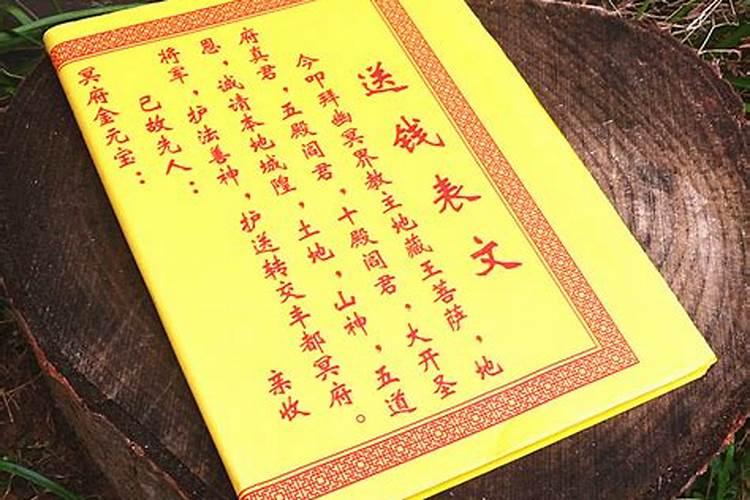 送钱表文
今叩拜幽冥界教主地藏王菩萨，地
府真君，五殿阎君，十殿阎君，大开圣
恩，诚请本地城隍，土地，山神，五道
将军，护法善神，护送转交丰都冥府。
已故先人： 亲收
冥府金元宝：